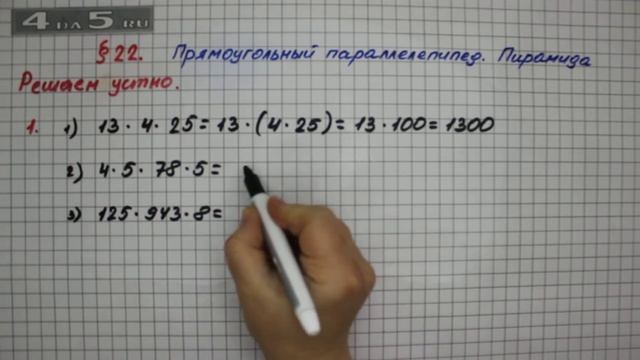 4 DA 5 RU
§ 22. Прямоугольный параллелепипед. Пирамида
Решаем устно.
1. 1) 13 · 4 · 25 = 13 · (4 · 25) = 13 · 100 = 1300
2) 4 · 5 · 78 · 5 =
3) 125 · 943 · 8 =